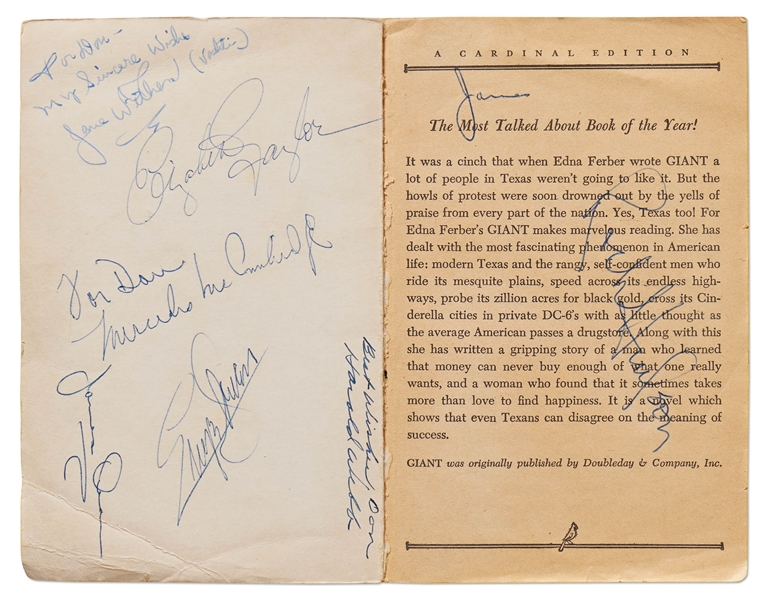 For Don -
My Sincere Wishes
Jane Withers (Vashti)
Elizabeth Taylor
For Don
Mercedes McCambridge
James Dean
George Stevens
Best Wishes, Don
Harold Webb
A CARDINAL EDITION
James
The Most Talked About Book of the Year!
It was a cinch that when Edna Ferber wrote GIANT a
lot of people in Texas weren't going to like it. But the
howls of protest were soon drowned out by the yells of
praise from every part of the nation. Yes, Texas too! For
Edna Ferber's GIANT makes marvelous reading. She has
dealt with the most fascinating phenomenon in American
life: modern Texas and the rangy, self-confident men who
ride its mesquite plains, speed across its endless high-
ways, probe its zillion acres for black gold, cross its Cin-
derella cities in private DC-6's with as little thought as
the average American passes a drugstore. Along with this
she has written a gripping story of a man who learned
that money can never buy enough of what one really
wants, and a woman who found that it sometimes takes
more than love to find happiness. It is a novel which
shows that even Texans can disagree on the meaning of
success.
Rock Hudson
GIANT was originally published by Doubleday & Company, Inc.